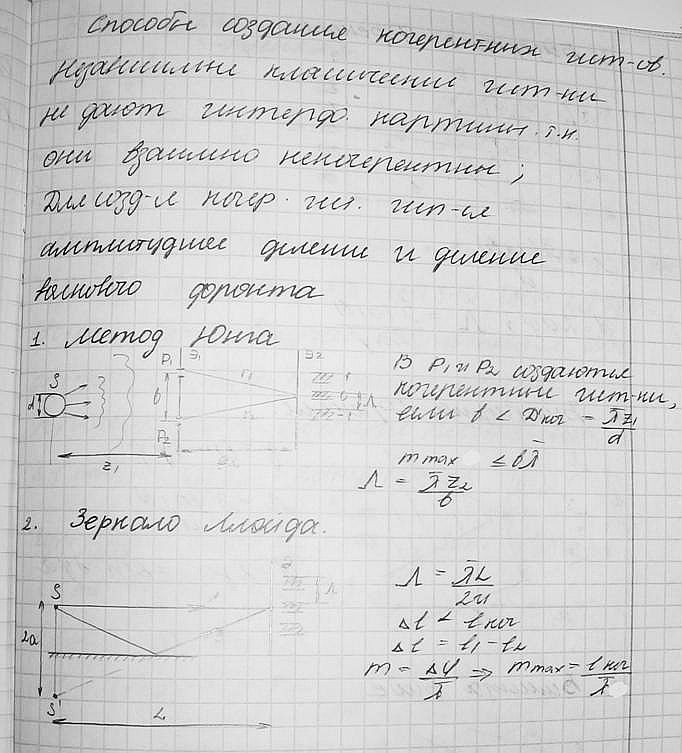 Способы создания когерентных ист-ов.
Независимые классические ист-ки
не дают интерф. картины т.к.
они взаимно некогерентны;
Для созд-я когер. ист. исп-ся
амплитудное деление и деление
волнового фронта
1. Метод Юнга
P₁ Э₁ Э₂
S d r₁ b r₂ Λ
P₂
z₁ z₂
В P₁ и P₂ создаются
когерентные ист-ки,
если b < D ког = λ̄z₁/d
m max ≤ b λ̄
Λ = λ̄z₂/b
2. Зеркало Ллойда.
Э Λ
S
2a
S'
L
Λ = λ̄L/2a
Δl < l ког
Δl = l₁ - l₂
m = Δl/λ̄ ⇒ m max = l ког/λ̄